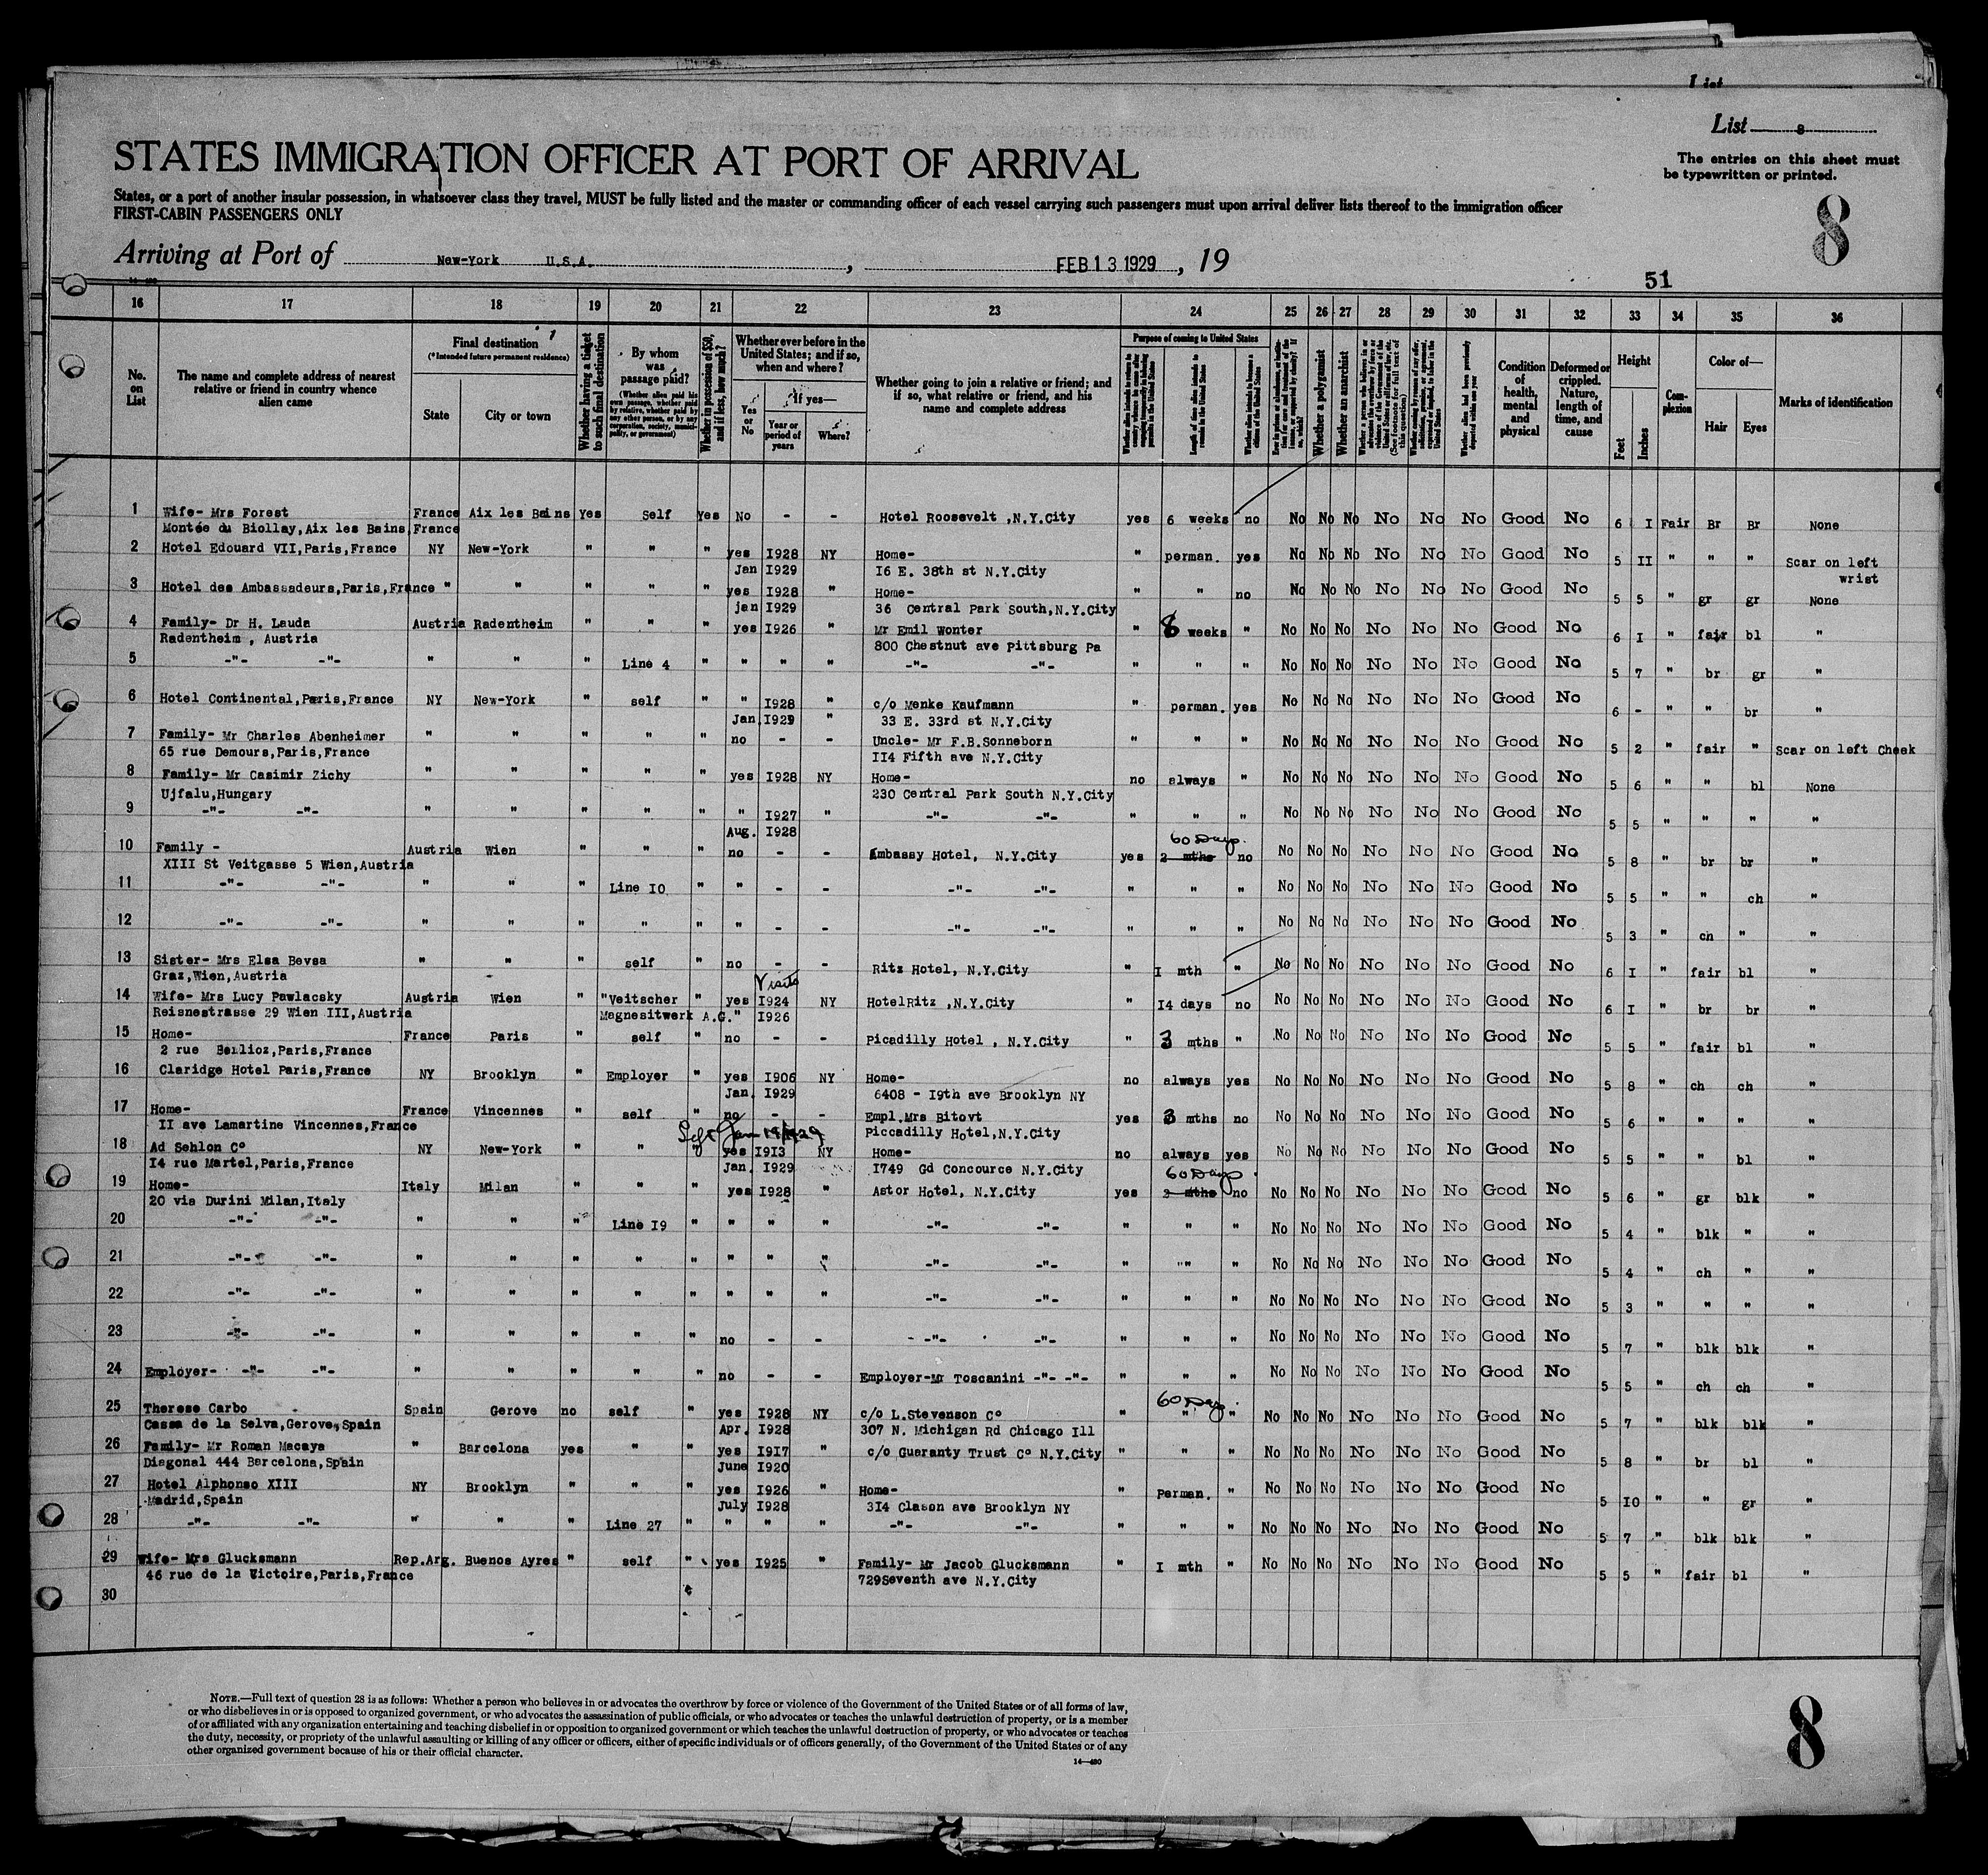 List
List 8
STATES IMMIGRATION OFFICER AT PORT OF ARRIVAL
The entries on this sheet must
be typewritten or printed.
States, or a port of another insular possession, in whatsoever class they travel, MUST be fully listed and the master or commanding officer of each vessel carrying such passengers must upon arrival deliver lists thereof to the immigration officer
FIRST-CABIN PASSENGERS ONLY
8
Arriving at Port of New-York U.S.A. , FEB 13 1929 , 19
51
16 17 18 19 20 21 22 23 24 25 26 27 28 29 30 31 32 33 34 35 36
No. on List
The name and complete address of nearest relative or friend in country whence alien came
Final destination
(*Intended future permanent residence)
State
City or town
Whether having a ticket to such final destination
By whom was passage paid?
(Whether alien paid his own passage, whether paid by relative, whether paid by any other person, or by any corporation, society, municipality, or government)
Whether in possession of $50, and if less, how much?
Whether ever before in the United States; and if so, when and where?
Yes or No
If yes—
Year or period of years
Where?
Whether going to join a relative or friend; and if so, what relative or friend, and his name and complete address
Purpose of coming to United States
Length of time alien intends to remain in the United States
Whether alien intends to become a citizen of the United States
Whether a polygamist
Whether an anarchist
Condition of health, mental and physical
Deformed or crippled. Nature, length of time, and cause
Height
Feet
Inches
Complexion
Color of—
Hair
Eyes
Marks of identification
1 Wife- Mrs Forest France Aix les Bains Yes Self Yes No - - Hotel Roosevelt ,N.Y.City yes 6 weeks no No No No No No No Good No 6 I Fair Br Br None
Montée du Biollay,Aix les Bains,France
2 Hotel Edouard VII,Paris,France NY New-York " " " yes I928 NY Home- " perman. yes No No No No No No Good No 5 II " " " Scar on left
Jan I929 I6 E. 38th st N.Y.City wrist
3 Hotel des Ambassadeurs,Paris,France " " " " " yes I928 " Home- " " no No No No No No No Good No 5 5 " gr gr None
jan I929 36 Central Park South,N.Y.City
4 Family- Dr H. Lauda Austria Radentheim " " " yes I926 " Mr Emil Wonter " 8 weeks " No No No No No No Good No 6 I " fair bl "
Radentheim , Austria 800 Chestnut ave Pittsburg Pa
5 -"- -"- " " " Line 4 " " " " -"- -"- " " " No No No No No No Good No 5 7 " br gr "
6 Hotel Continental,Paris,France NY New-York " self " " I928 " c/o Menke Kaufmann " perman. yes No No No No No No Good No 6 - " " br "
Jan.I929 " 33 E. 33rd st N.Y.City
7 Family- Mr Charles Abenheimer " " " " " no - - Uncle- Mr F.B.Sonneborn " " " No No No No No No Good No 5 2 " fair " Scar on left Cheek
65 rue Demours,Paris,France II4 Fifth ave N.Y.City
8 Family- Mr Casimir Zichy " " " " " yes I928 NY Home- no always " No No No No No No Good No 5 6 " " bl None
Ujfalu,Hungary 230 Central Park South N.Y.City
9 -"- -"- " " " " " " I927 " -"- -"- " " " No No No No No No Good No 5 5 " " " "
Aug. I928
60 Days.
10 Family - Austria Wien " " " no - - Embassy Hotel, N.Y.City yes 2 mths no No No No No No No Good No 5 8 " br br "
XIII St Veitgasse 5 Wien,Austria
11 -"- -"- " " " Line IO " " - - -"- -"- " " " No No No No No No Good No 5 5 " " ch "
12 -"- -"- " " " " " " - - -"- -"- " " " No No No No No No Good No 5 3 " ch " "
13 Sister- Mrs Elsa Bevsa " " " self " no - - Ritz Hotel, N.Y.City " I mth " No No No No No No Good No 6 I " fair bl "
Graz,Wien,Austria
Visits
14 Wife- Mrs Lucy Pawlacsky Austria Wien " "Veitscher " yes I924 NY HotelRitz ,N.Y.City " I4 days no No No No No No No Good No 6 I " br br "
Reisnestrasse 29 Wien III,Austria Magnesitwerk A.G." I926
15 Home- France Paris " self " no - - Picadilly Hotel , N.Y.City " 3 mths " No No No No No No Good No 5 5 " fair bl "
2 rue Berlioz,Paris,France
16 Claridge Hotel Paris,France NY Brooklyn " Employer " yes I906 NY Home- no always yes No No No No No No Good No 5 8 " ch ch "
Jan. I929 6408 - I9th ave Brooklyn NY
17 Home- France Vincennes " self " no - - Empl.Mrs Bitovt yes 3 mths no No No No No No No Good No 5 6 " " " "
II ave Lamartine Vincennes,France Piccadilly Hotel,N.Y.City
18 Ad Sehlon Co NY New-York " " " yes I9I3 NY Home- no always yes No No No No No No Good No 5 5 " " bl "
I4 rue Martel,Paris,France Jan. I929 I749 Gd Concource N.Y.City
60 Days
19 Home- Italy Milan " " " yes I928 " Astor Hotel, N.Y.City yes 2 mths no No No No No No No Good No 5 6 " gr blk "
20 via Durini Milan,Italy
20 -"- -"- " " " Line I9 " " " " -"- -"- " " " No No No No No No Good No 5 4 " blk " "
21 -"- -"- " " " " " " " " -"- -"- " "" " No No No No No No Good No 5 4 " ch " "
22 -"- -"- " " " " " " " " -"- -"- " " " No No No No No No Good No 5 3 " " " "
23 -"- -"- " " " " " no - - -"- -"- " " " No No No No No No Good No 5 7 " blk blk "
24 Employer- -"- -"- " " " " " no - - Employer-Mr Toscanini -"- -"- " " " No No No No No No Good No 5 5 " ch ch "
60 Days.
25 Therese Carbo Spain Gerove no self " yes I928 NY c/o L.Stevenson Co " " " No No No No No No Good No 5 7 " blk blk "
Cassa de la Selva,Gerove,Spain Apr. I928 307 N. Michigan Rd Chicago Ill
26 Family- Mr Roman Macaya " Barcelona yes " " yes I9I7 " c/o Guaranty Trust Co N.Y.City " " " No No No No No No Good No 5 8 " br bl "
Diagonal 444 Barcelona,Spain June I920
27 Hotel Alphonso XIII NY Brooklyn " " " yes I926 " Home- " Perman. " No No No No No No Good No 5 IO " " gr "
Madrid,Spain July I928 3I4 Clason ave Brooklyn NY
28 -"- -"- " " " Line 27 " " " " -"- -"- " " " No No No No No No Good No 5 7 " blk blk "
29 Wife- Mrs Glucksmann Rep.Arg. Buenos Ayres " self " yes I925 " Family- Mr Jacob Glucksmann " I mth " No No No No No No Good No 5 5 " fair bl "
46 rue de la Victoire,Paris,France 729Seventh ave N.Y.City
30
NOTE.—Full text of question 28 is as follows: Whether a person who believes in or advocates the overthrow by force or violence of the Government of the United States or of all forms of law,
or who disbelieves in or is opposed to organized government, or who advocates the assassination of public officials, or who advocates or teaches the unlawful destruction of property, or is a member
of or affiliated with any organization entertaining and teaching disbelief in or opposition to organized government or which teaches the unlawful destruction of property, or who advocates or teaches
the duty, necessity, or propriety of the unlawful assaulting or killing of any officer or officers, either of specific individuals or of officers generally, of the Government of the United States or of any
other organized government because of his or their official character.
14—430
8